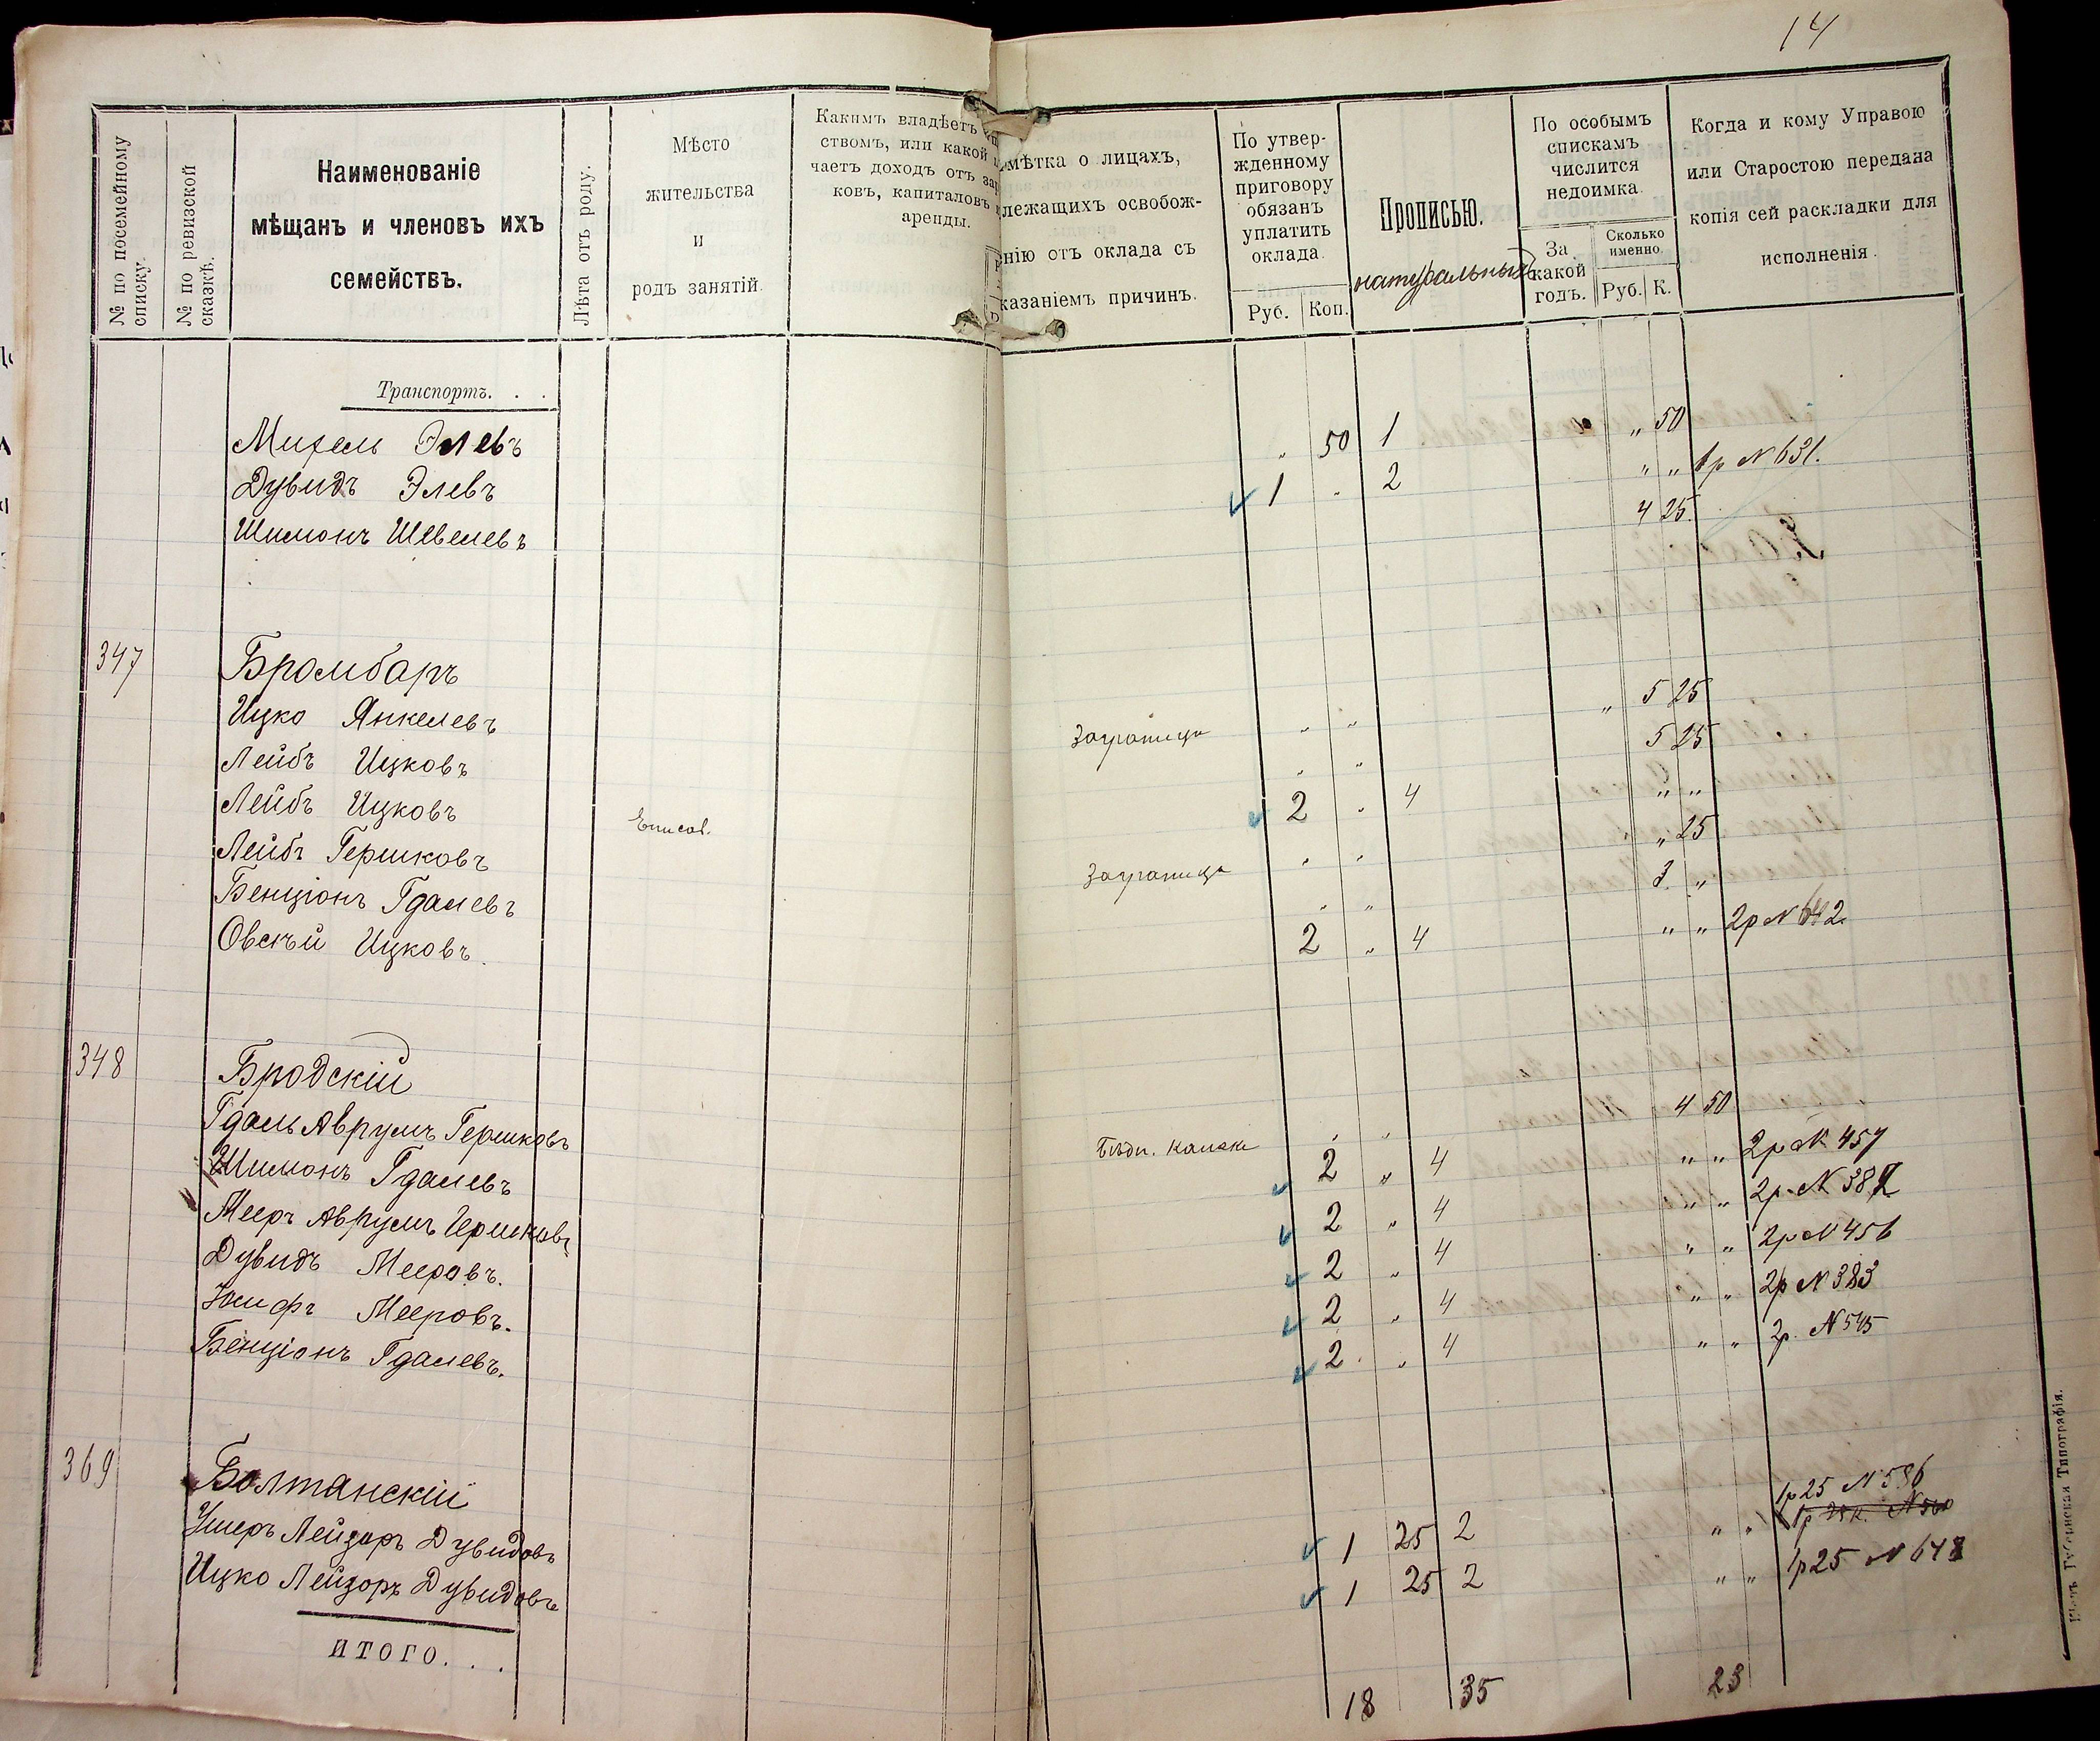 14
№ по посемейному списку.
№ по ревизской сказкѣ.
Наименованіе
мѣщанъ и членовъ ихъ
семействъ.
Лѣта отъ роду.
Мѣсто
жительства
и
родъ занятій.
Какимъ владѣетъ
ствомъ, или какой
чаетъ доходъ отъ зар
ковъ, капиталовъ
аренды.
мѣтка о лицахъ,
лежащихъ освобож-
нію отъ оклада съ
казаніемъ причинъ.
По утвер-
жденному
приговору
обязанъ
уплатить
оклада.
Руб. Коп.
Прописью.
натуральный
По особымъ
спискамъ
числится
недоимка.
За
какой
годъ.
Сколько
именно.
Руб. К.
Когда и кому Управою
или Старостою передана
копія сей раскладки для
исполненія.
Транспортъ. . .
Михель Элевъ „ 50 1 „ 50
Дувидъ Элевъ 1 „ 2 „ „ 1р N 631.
Шимонъ Шевелевъ 4 25.
347 Бромбаръ
Ицко Янкелевъ Заграница „ „ „ 5 25
Лейбъ Ицковъ „ „ 5 25
Лейбъ Ицковъ 2 „ 4 „ „
Лейбъ Гершковъ „ „ „ 25
Бенціонъ Гдалевъ Заграница „ „ 3. „
Овсѣй Ицковъ. 2 „ 4 „ „ 2р N 642.
348 Бродскій
Гдаль Аврумъ Гершковъ „ „ 4 50
Шимонъ Гдалевъ 2 „ 4 „ „ 2р N 457
Мееръ Аврумъ Гершковъ 2 „ 4 „ „ 2р. N 387
Дувидъ Мееровъ. 2 „ 4 „ „ 2р N 456
Іосифъ Мееровъ. 2 „ 4 „ „ 2р N 383
Бенціонъ Гдалевъ. 2 „ 4 „ „ 2р. N 545
369 Болтанскій
1р 25 N 596
Ушеръ Лейзоръ Дувидовъ 1 25 2 „ „ 1р 25 к. N 560
Ицко Лейзоръ Дувидовъ 1 25 2 „ „ 1р 25 N 648
ИТОГО. . . 18 35 23
Кіевъ Губернская Типографія.